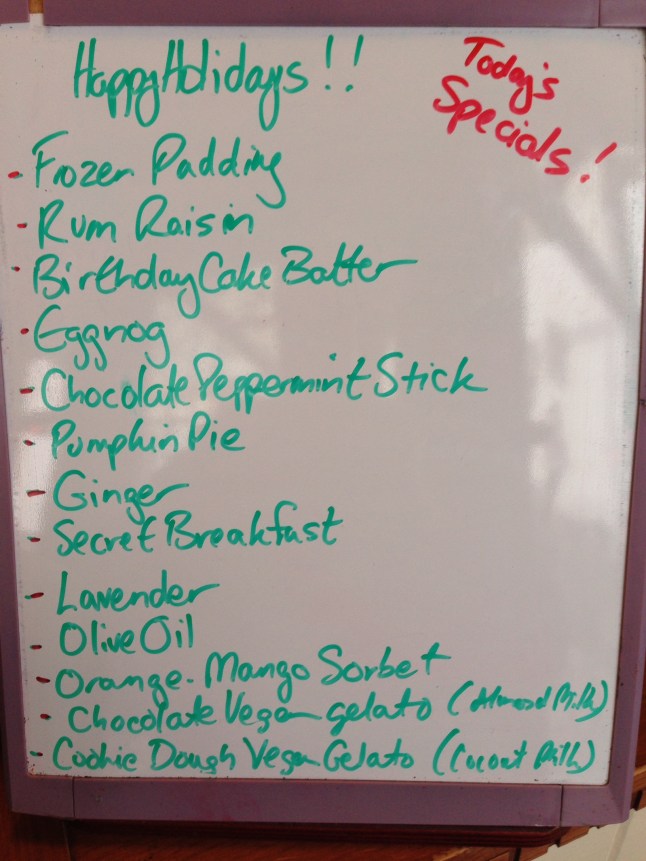 Happy Holidays!!
Today's
Specials!
- Frozen Padding
- Rum Raisin
- Birthday Cake Batter
- Eggnog
- Chocolate Peppermint Stick
- Pumpkin Pie
- Ginger
- Secret Breakfast
- Lavender
- Olive Oil
- Orange-Mango Sorbet
- Chocolate Vegan gelato (Almond Milk)
- Cookie Dough Vegan Gelato (Cocout Milk)